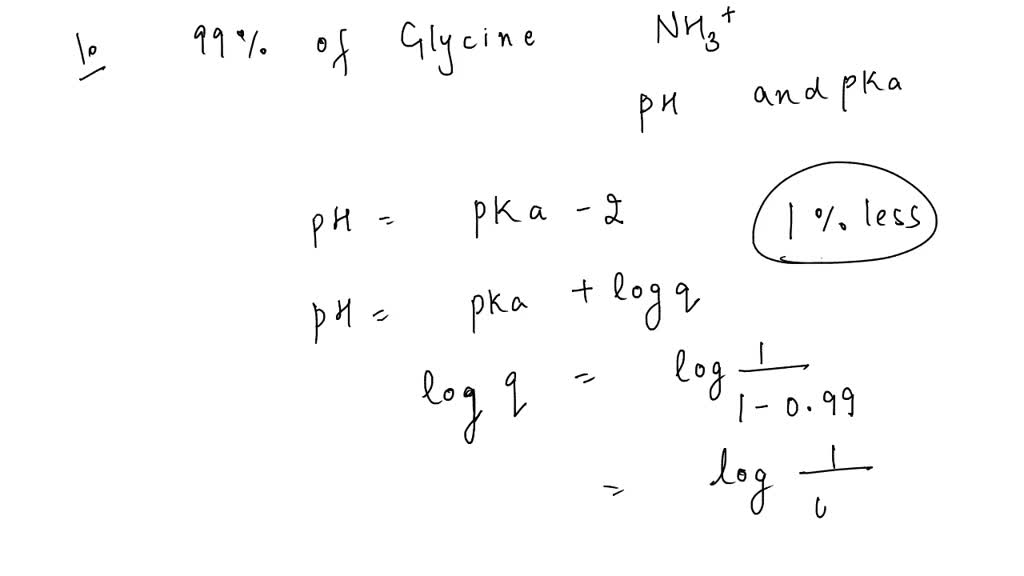 1. 99% of Glycine NH3+
pH and pKa
pH = pKa - 2
1% less
pH = pKa + log q
log q = log 1/(1 - 0.99)
= log 1/0